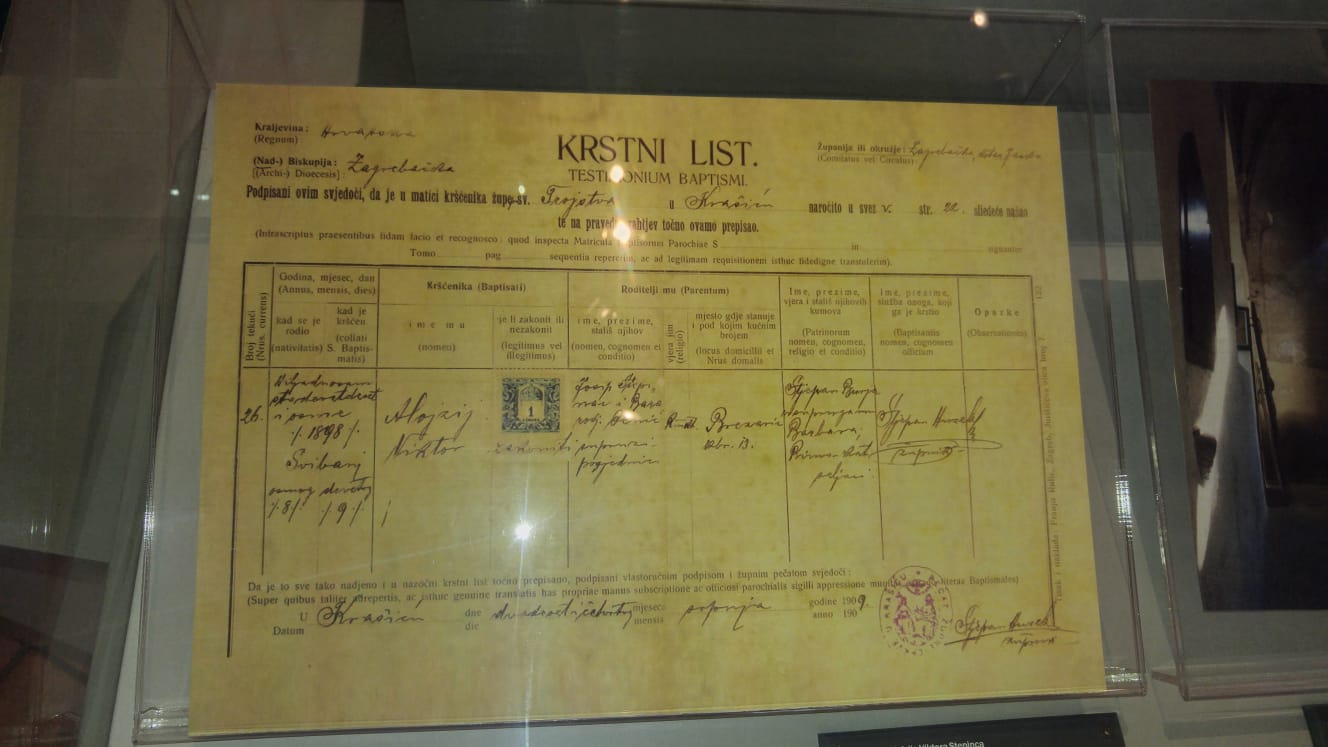 Kraljevina: Hrvatska
(Regnum)
KRSTNI LIST.
Županija ili okružje: Zagrebačka, kotar Jaska
(Comitatus vel Circulus)
(Nad-) Biskupija: Zagrebačka
(Archi-) Dioecesis)
TESTIMONIUM BAPTISMI.
Podpisani ovim svjedoči, da je u matici kršćenika župe sv. Trojstva u Krašiću naročito u svez v. str. 22. sliedeće našao
te na pravedni zahtjev točno ovamo prepisao.
(Intrascriptus praesentibus fidam facio et recognosco: quod inspecta Matricula Baptisorum Parochiae S in signanter
Tomo pag sequentia repererim, ac ad legitimam requisitionem isthuc fidedigne transtulerim).
Broj tekući
(Nrus. currens)
Godina, mjesec, dan
(Annus, mensis, dies)
kad se je
rodio
(nativitatis)
kad je
kršćen
(collati
S. Baptis-
matis)
Kršćenika (Baptisati)
ime mu
(nomen)
je li zakonit ili
nezakonit
(legitimus vel
illegitimus)
Roditelji mu (Parentum)
ime, prezime,
stališ njihov
(nomen, cognomen et
conditio)
vjera jim
(religio)
mjesto gdje stanuje
i pod kojim kućnim
brojem
(locus domicilii et
Nrus domalis
Ime, prezime,
vjera i stališ njihovih
kumova
(Patrinorum
nomen, cognomen,
religio et conditio)
Ime, prezime,
služba onoga, koji
ga je krstio
(Baptisantis
nomen, cognomen
officium
Opazke
(Observationes)
26.
i osme
1898
Svibanj
osmog devetog
8 9
Alojzij
Viktor
1
zakoniti
Josip Stepi-
nac i Bara
rodj.
Brezarić
kbr. 13.
Stjepan
Barbara
Stjepan Huzek
župnik
Da je to sve tako nadjeno i u nazočni krstni list točno prepisano, podpisani vlastoručnim podpisom i župnim pečatom svjedoči:
(Super quibus taliter repertis, ac isthuc genuine translatis has propriae manus subscriptione ac officiosi parochialis sigilli appressione literas Baptismales)
U Krašiću dne dvadesetičetvrtog mjeseca srpnja godine 1909.
Datum die mensis anno 190
Stjepan Huzek
župnik
Tisak i naklada: Franja Zagreb, Jurišićeva ulica broj 7.
Viktora Stepinca